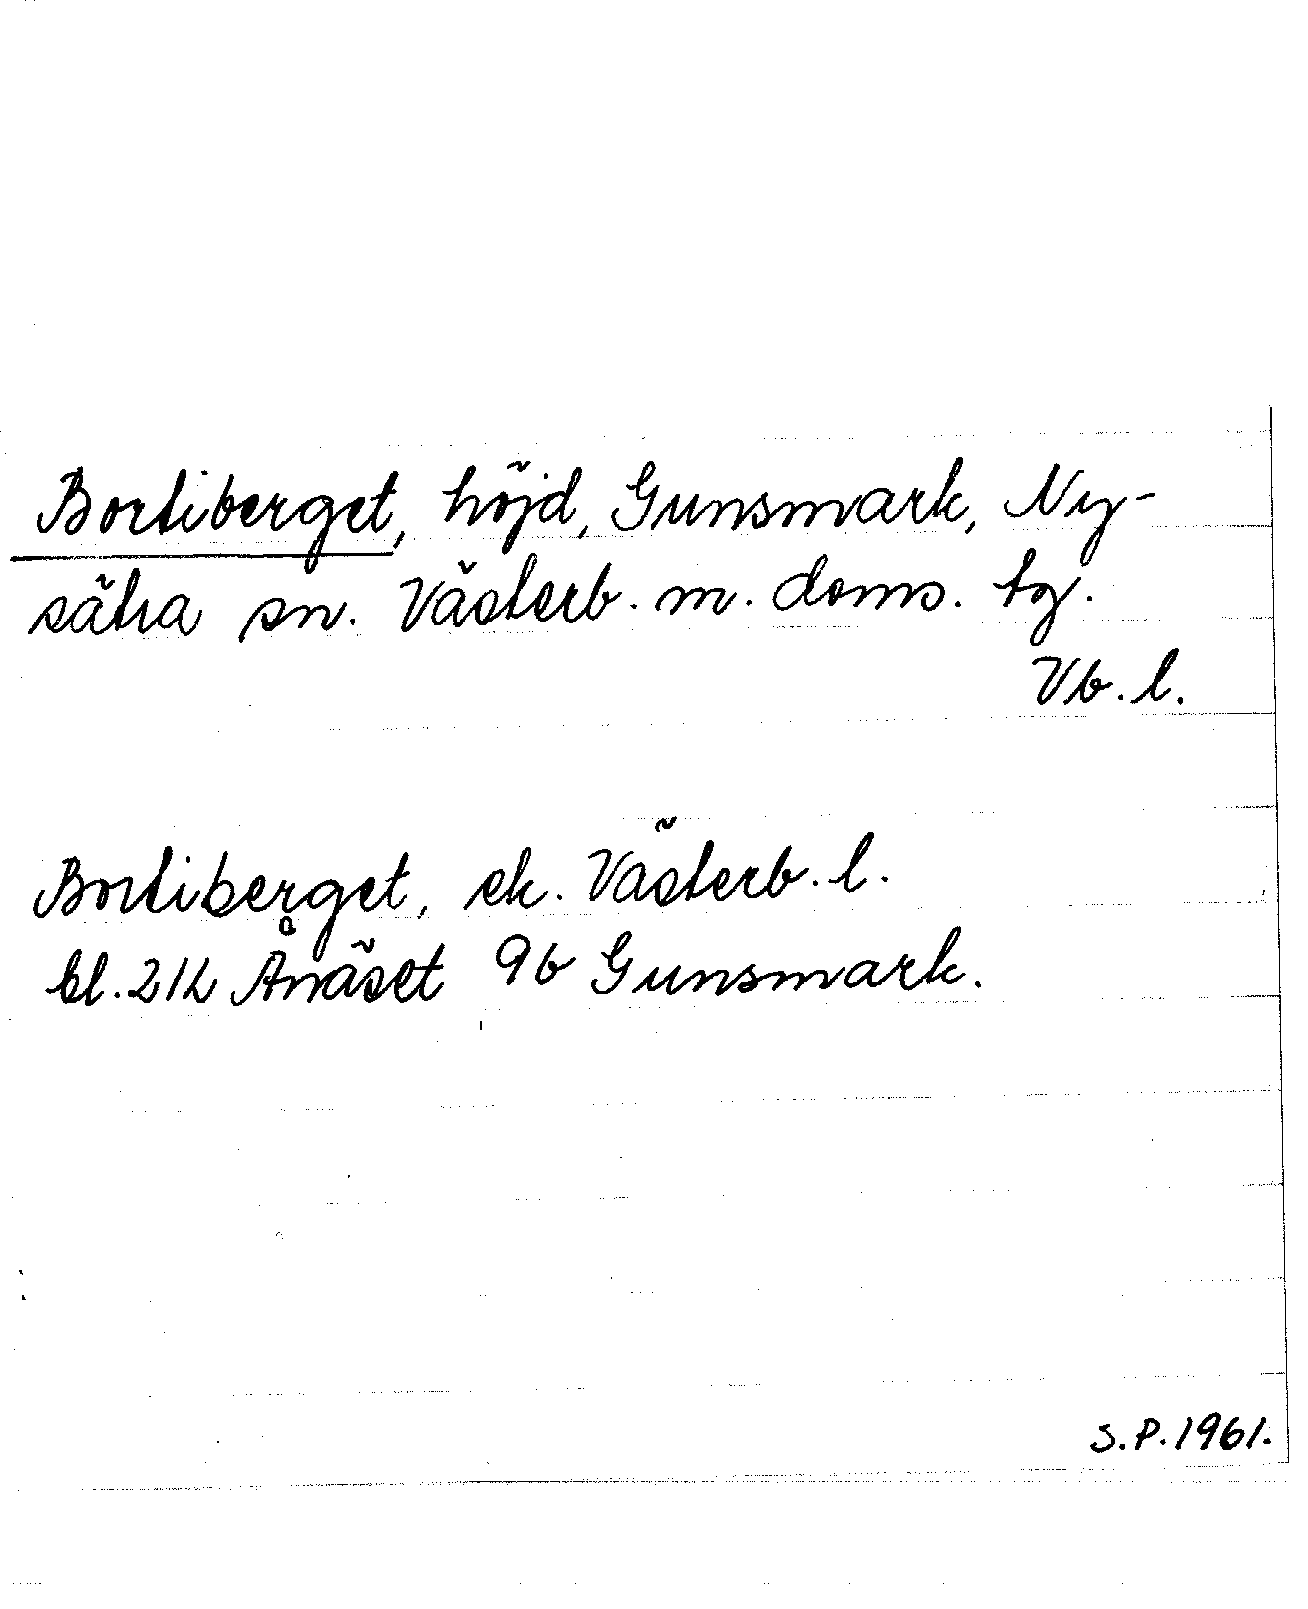 Bortiberget, höjd, Gunsmark, Ny-
sätra sn. Västerb. m. doms. tg.
Vb. l.
Bortiberget, ek. Västerb. l.
bl. 21L Ånäset 9b Gunsmark.
S.P. 1961.